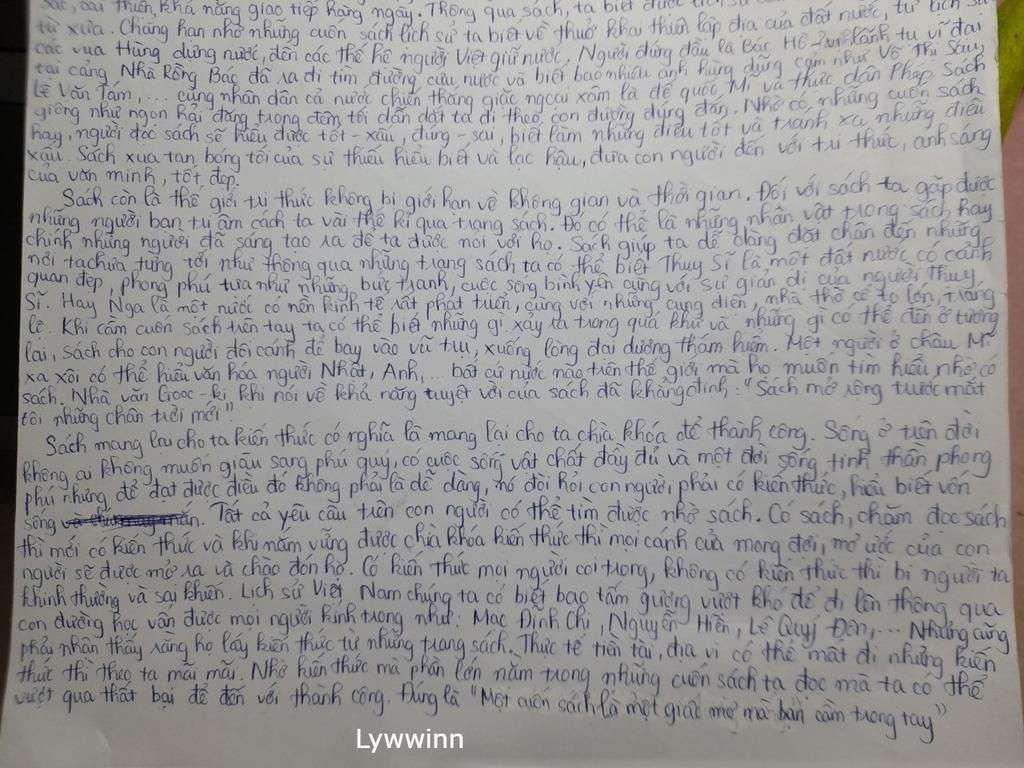 sắc, cải thiện khả năng giao tiếp hằng ngày. Thông qua sách, ta biết được lịch sử
từ xưa. Chẳng hạn nhờ những cuốn sách lịch sử ta biết về thuở khai thiên lập địa của đất nước, từ lịch sử
các vua Hùng dựng nước, đến các thế hệ người Việt giữ nước. Người đứng đầu là Bác Hồ - vị lãnh tụ vĩ đại
tại cảng Nhà Rồng Bác đã ra đi tìm đường cứu nước và biết bao nhiêu anh hùng dũng cảm như Võ Thị Sáu,
Lê Văn Tám, ... cùng nhân dân cả nước chiến thắng giặc ngoại xâm là đế quốc Mĩ và thực dân Pháp. Sách
giống như ngọn hải đăng trong đêm tối dẫn dắt ta đi theo con đường đúng đắn. Nhờ có những cuốn sách
hay, người đọc sách sẽ hiểu được tốt - xấu, đúng - sai, biết làm những điều tốt và tránh xa những điều
xấu. Sách xua tan bóng tối của sự thiếu hiểu biết và lạc hậu, đưa con người đến với tri thức, ánh sáng
của văn minh, tốt đẹp.
Sách còn là thế giới tri thức không bị giới hạn về không gian và thời gian. Đối với sách ta gặp được
những người bạn tri âm cách ta vài thế kỉ qua trang sách. Đó có thể là những nhân vật trong sách hay
chính những người đã sáng tạo ra để ta được nói với họ. Sách giúp ta dễ dàng đặt chân đến những
nơi ta chưa từng tới như thông qua những trang sách ta có thể biết Thụy Sĩ là một đất nước có cảnh
quan đẹp, phong phú tựa như những bức tranh, cuộc sống bình yên cùng với sự giản dị của người Thụy
Sĩ. Hay Nga là một nước có nền kinh tế rất phát triển, cùng với những cung điện, nhà thờ cổ to lớn, tráng
lệ. Khi cầm cuốn sách trên tay ta có thể biết những gì xảy ra trong quá khứ và những gì có thể đến ở tương
lai, sách cho con người đôi cánh để bay vào vũ trụ, xuống lòng đại dương thám hiểm. Một người ở châu Mĩ
xa xôi có thể hiểu văn hóa người Nhật, Anh,... bất cứ nước nào trên thế giới mà họ muốn tìm hiểu nhờ có
sách. Nhà văn Gooc-ki khi nói về khả năng tuyệt vời của sách đã khẳng định: "Sách mở rộng trước mắt
tôi những chân trời mới"
Sách mang lại cho ta kiến thức có nghĩa là mang lại cho ta chìa khóa để thành công. Sống ở trên đời
không ai không muốn giàu sang phú quý, có cuộc sống vật chất đầy đủ và một đời sống tinh thần phong
phú nhưng để đạt được điều đó không phải là dễ dàng, nó đòi hỏi con người phải có kiến thức, hiểu biết vốn
sống. Tất cả yêu cầu trên con người có thể tìm được nhờ sách. Có sách, chăm đọc sách
thì mới có kiến thức và khi nắm vững được chìa khóa kiến thức thì mọi cánh cửa mong đợi, mơ ước của con
người sẽ được mở ra và chào đón họ. Có kiến thức mọi người coi trọng, không có kiến thức thì bị người ta
khinh thường và sai khiến. Lịch sử Việt Nam chúng ta có biết bao tấm gương vượt khó để đi lên thông qua
con đường học vấn được mọi người kính trọng như: Mạc Đĩnh Chi, Nguyễn Hiền, Lê Quý Đôn,... Nhưng cũng
phải nhận thấy rằng họ lấy kiến thức từ những trang sách. Thực tế tiền tài, địa vị có thể mất đi nhưng kiến
thức thì theo ta mãi mãi. Nhờ kiến thức mà phần lớn nằm trong những cuốn sách ta đọc mà ta có thể
vượt qua thất bại để đến với thành công. Đúng là "Một cuốn sách là một giấc mơ mà bạn cầm trong tay"
Lywwinn